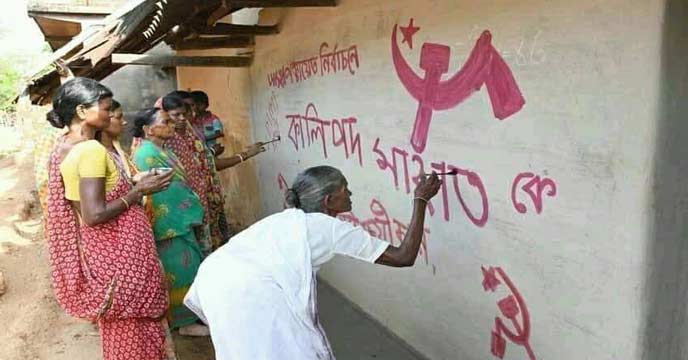 পঞ্চায়েত নির্বাচনে
কালিপদ মাহাত কে